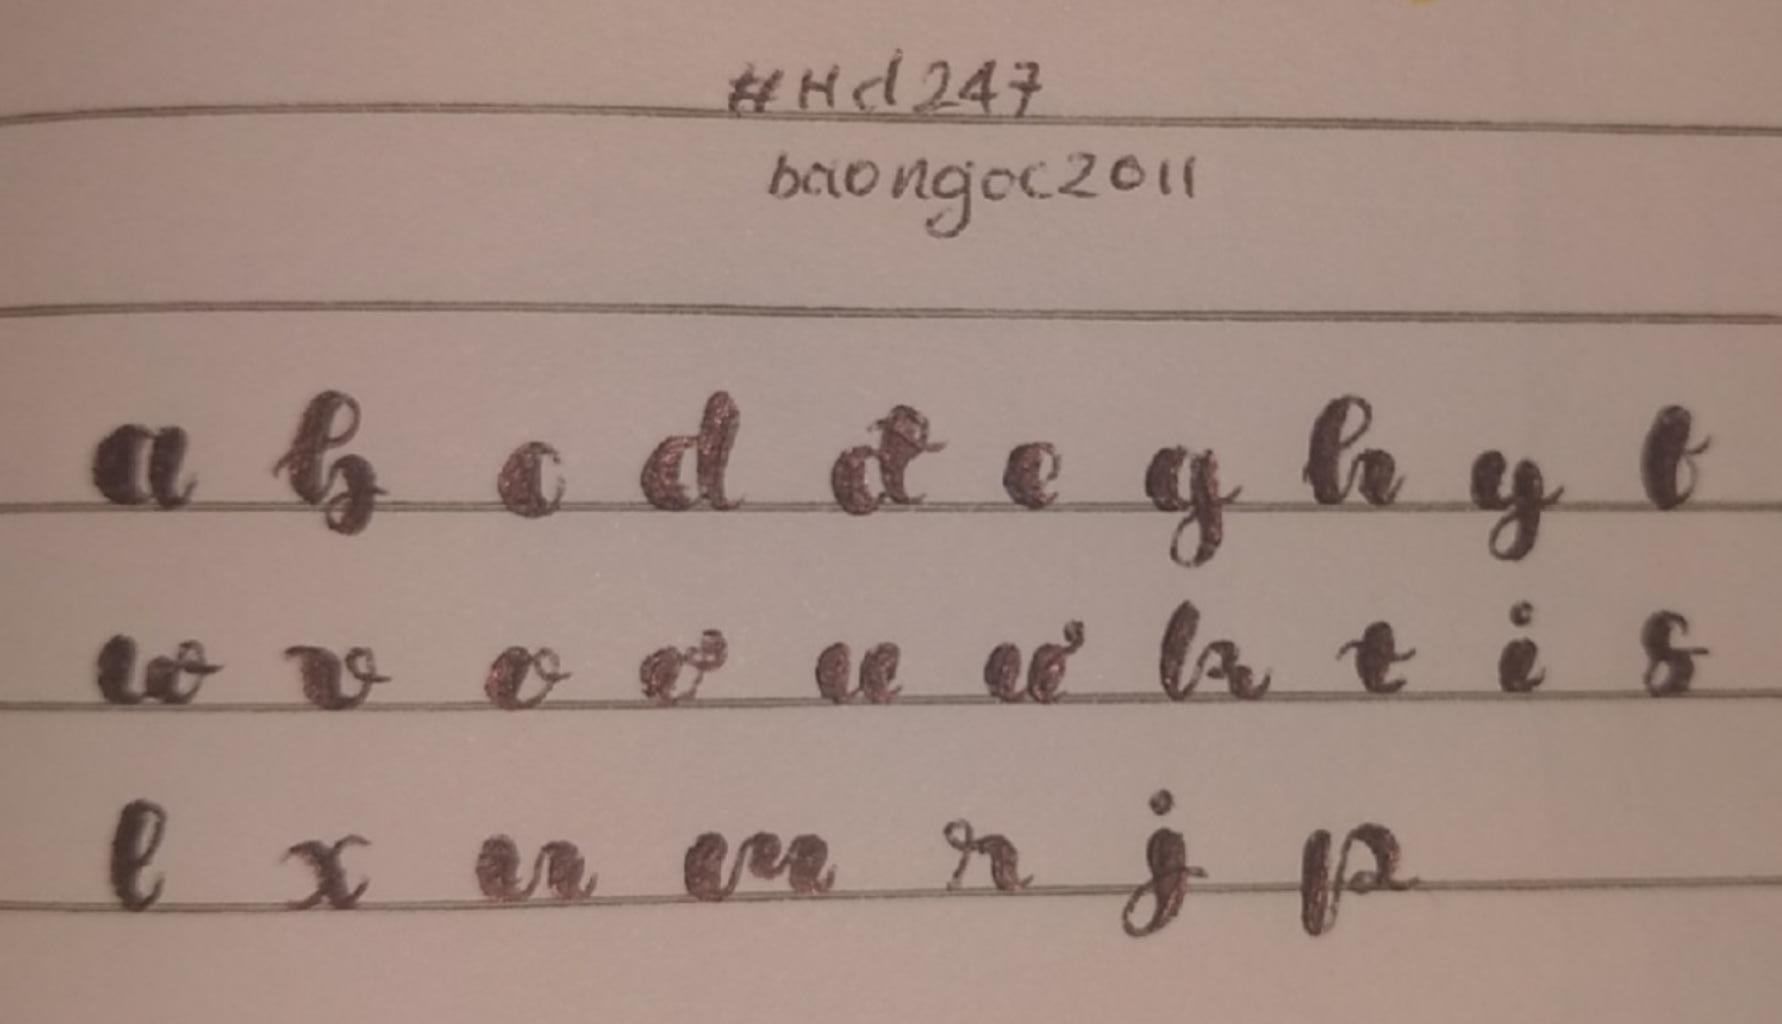 #Hd247
baongoc2011
a b c d đ e g h y t
w v o ơ u ư k t i s
l x n m r j p